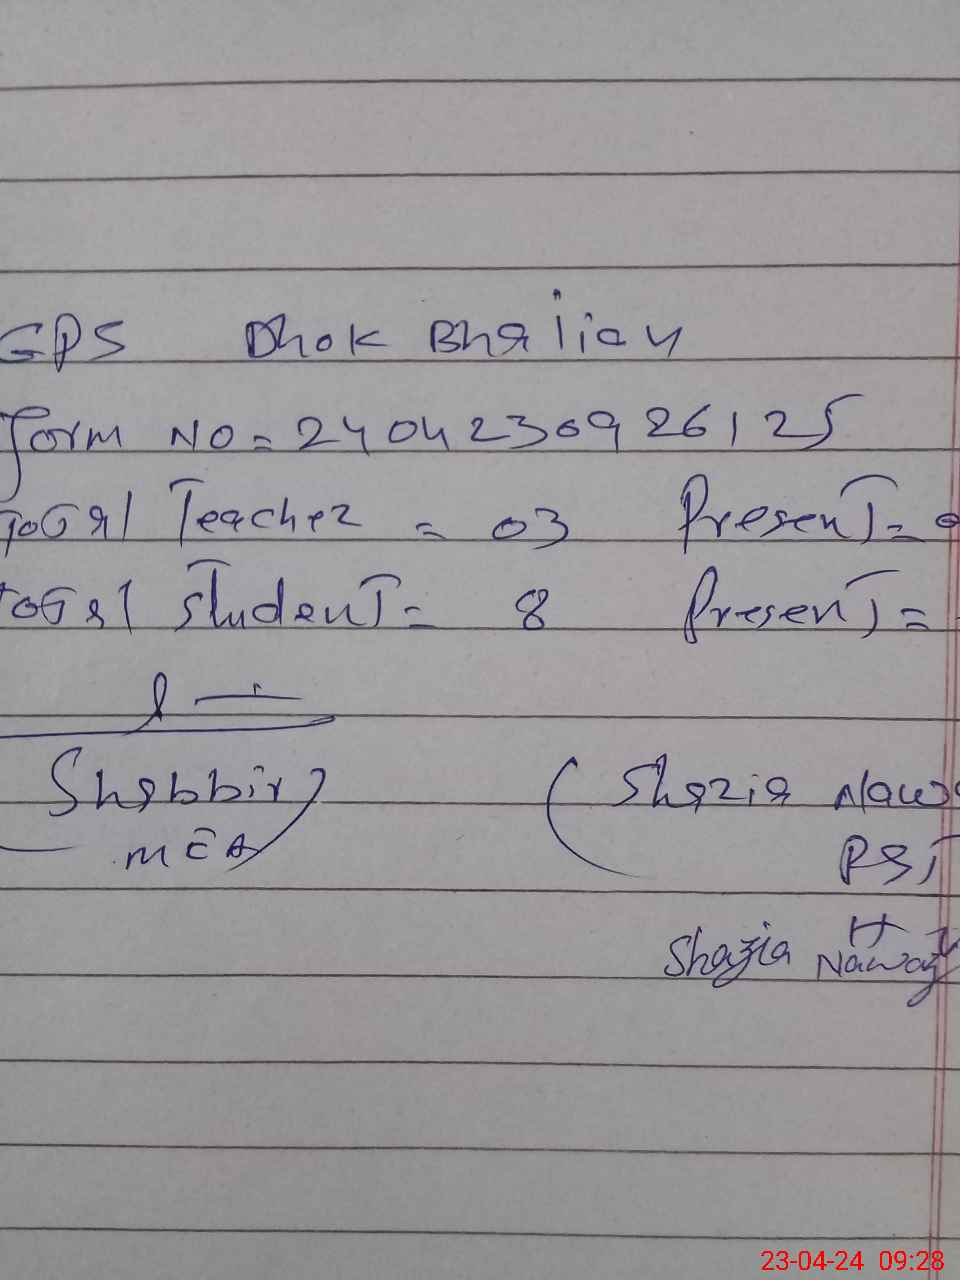 GPS Dhok Bhalian
Form No = 2404230926125
Total Teacher = 03 Present =
Total Student = 8 Present =
Shabbir
MEA
(Shazia Nawa
PST
Shazia Nawaz
23-04-24 09:28